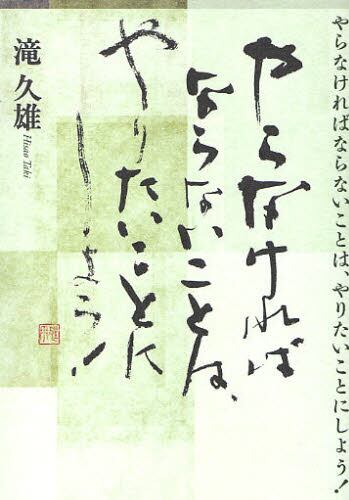 やらなければならないことは、やりたいことにしよう！
やらなければ
ならないことは、
やりたいことに
しよう！
滝 久雄
Hisao Taki